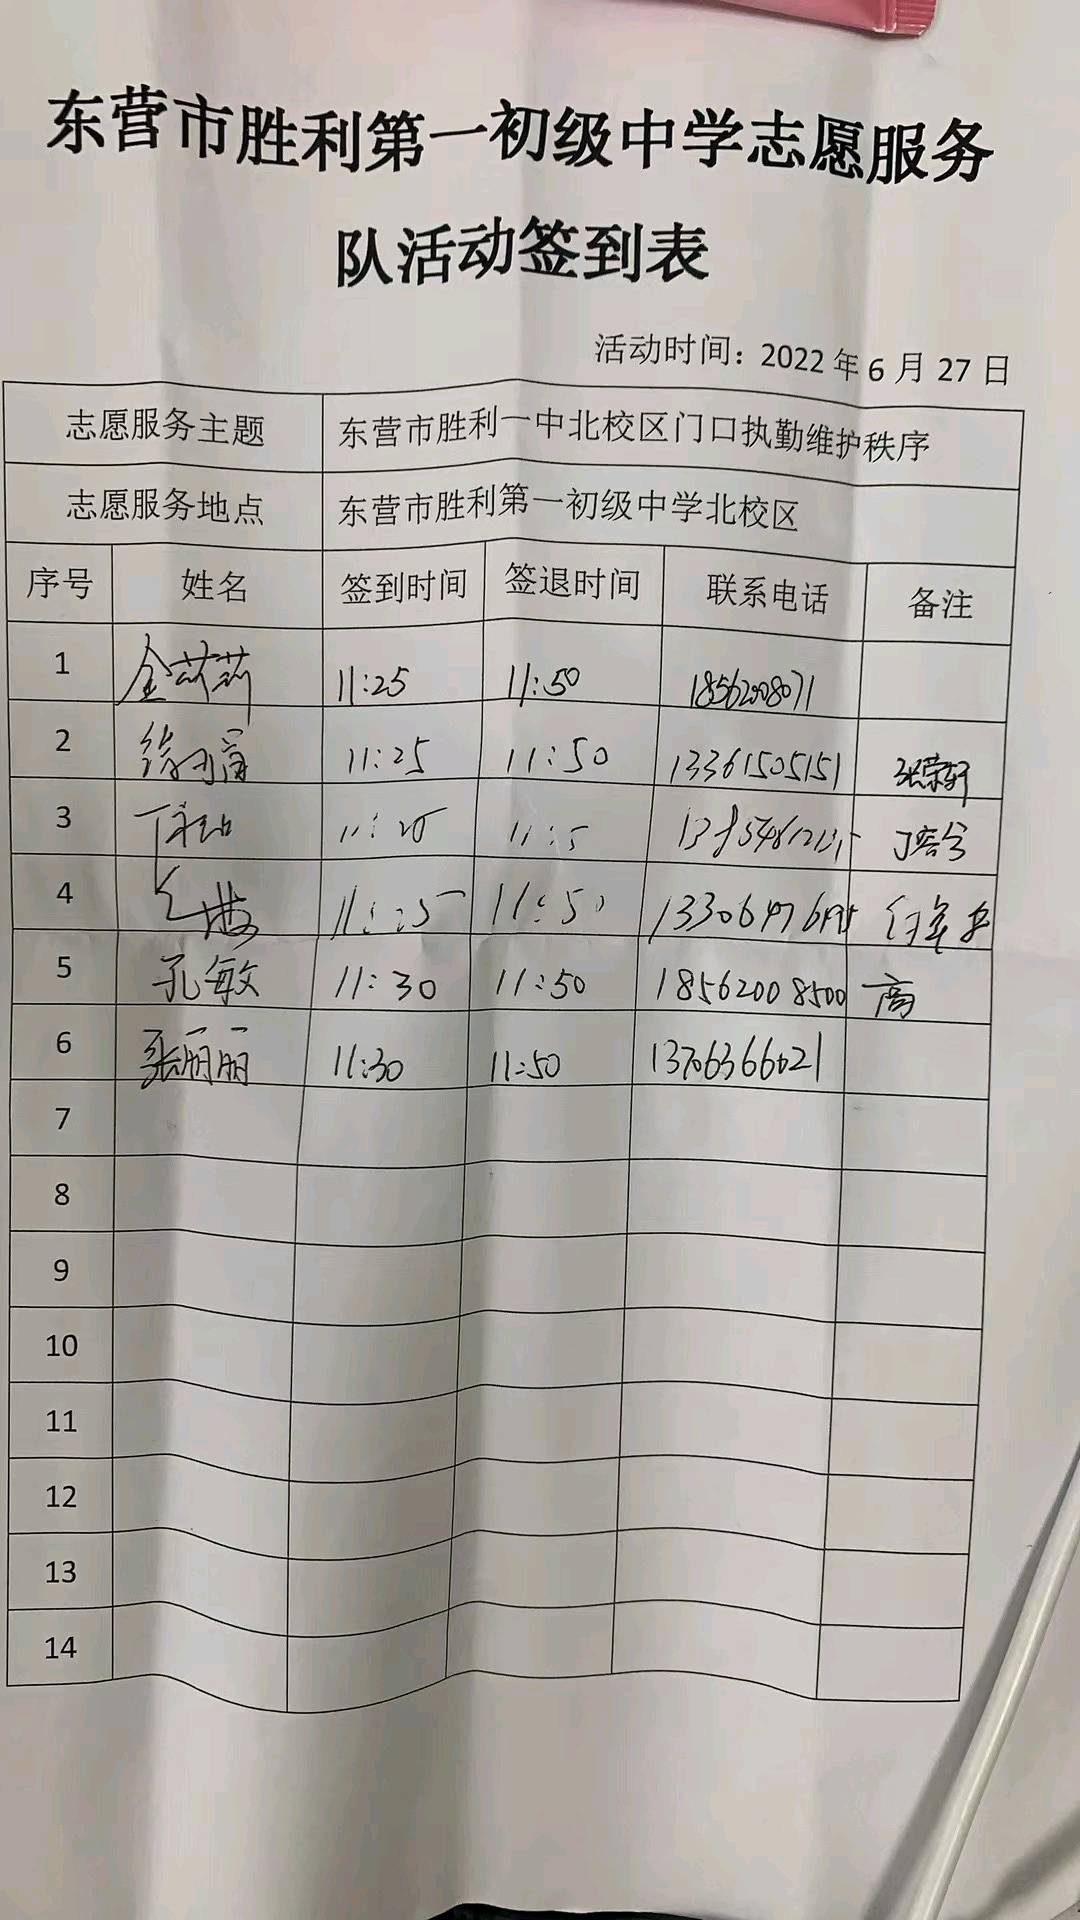 东营市胜利第一初级中学志愿服务
队活动签到表
活动时间：2022年6月27日
志愿服务主题 东营市胜利一中北校区门口执勤维护秩序
志愿服务地点 东营市胜利第一初级中学北校区
序号 姓名 签到时间 签退时间 联系电话 备注
1 11:25 11:50 18562008071
2 11:25 11:50 13361505151 张荣轩
3
4 11:25 11:50
5 孔敏 11:30 11:50 18562008500 高
6 张丽丽 11:30 11:50 13706366621
7
8
9
10
11
12
13
14